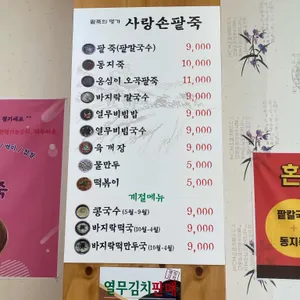 팥죽의 명가 사랑손팥죽
팥 죽(팥칼국수) 9,000
동지죽 10,000
옹심이 오곡팥죽 11,000
바지락 칼국수 9,000
열무비빔밥 9,000
열무비빔국수 9,000
육 개 장 9,000
물만두 5,000
떡볶이 5,000
계절메뉴
콩국수(5월~9월) 9,000
바지락떡국(10월-4월) 9,000
바지락떡만두국(10월-4월) 9,000
열무김치판매
죽
혼
팥칼국
+
동지죽